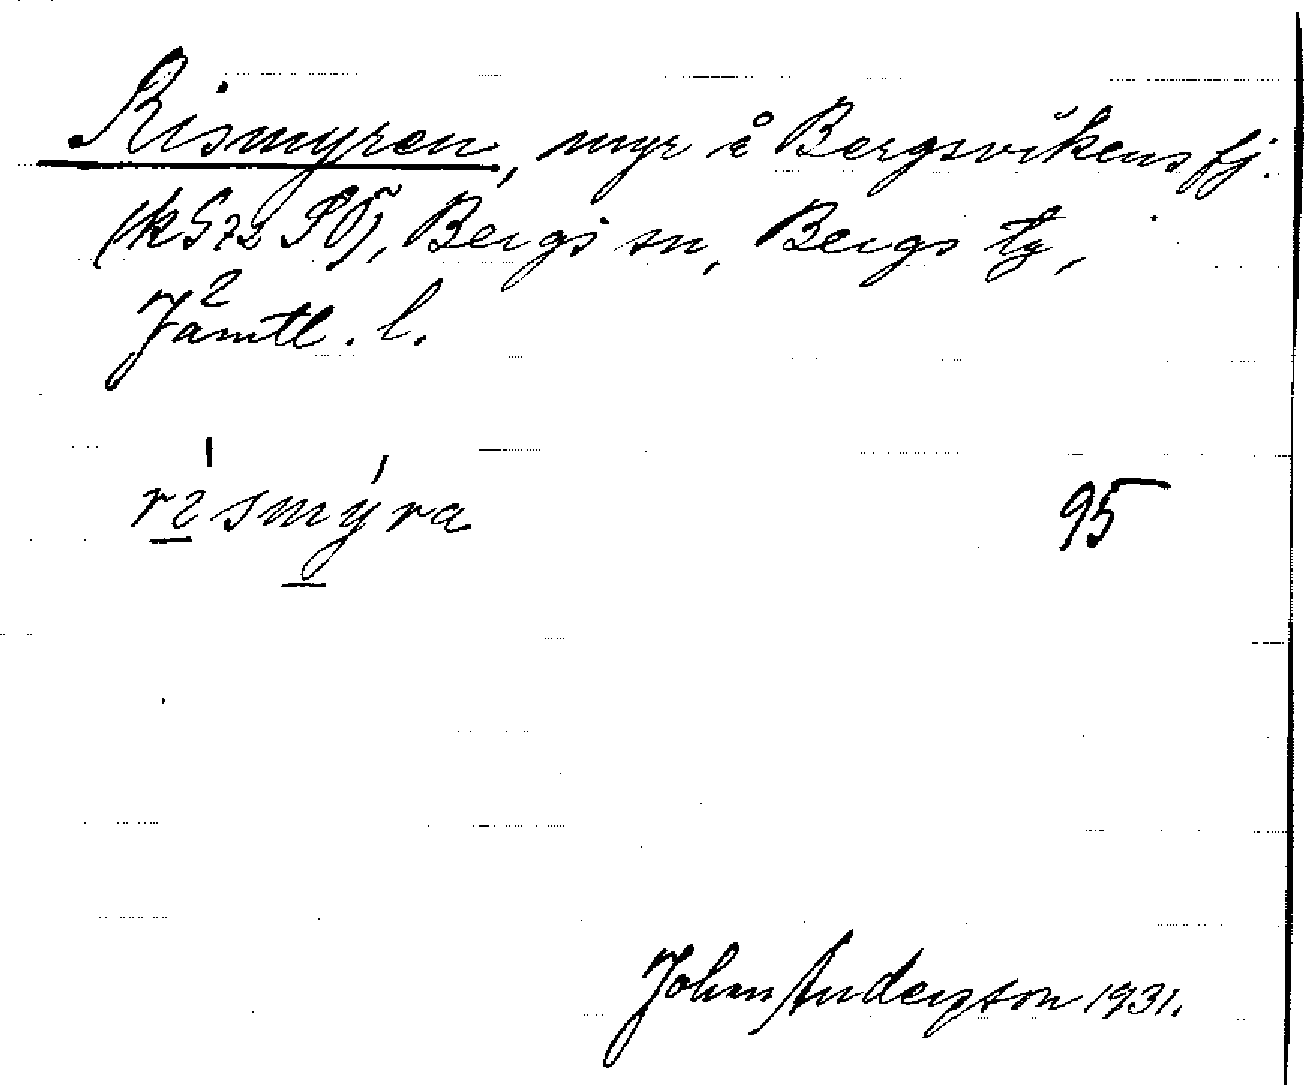 Rismyren, myr å Bergsvikens fj.
(k 572 SÖ), Bergs sn, Bergs tg,
Jämtl. l.
rismýra 95
Johan Andersson 1931.